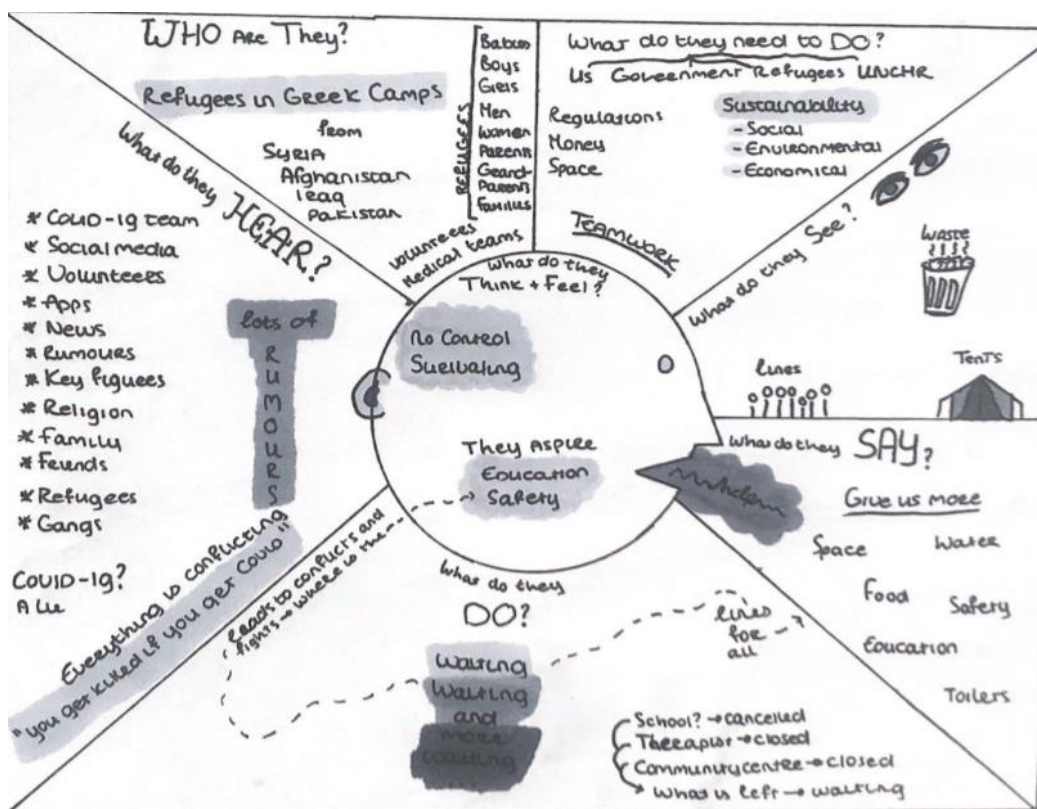 WHO ARE They?
Refugees in Greek Camps
from
SYRIA
Afghanistan
Iraq
Pakistan
REFUGEES
Babies
Boys
Girls
Men
Women
Parents
Grand-
Parents
Families
Volunteers
Medical teams
What do they need to DO?
Us Government Refugees UNCHR
Regulations
Money
Space
Sustainability
- Social
- Environmental
- Economical
TEAMWORK
What do they See?
Waste
lines
Tents
What do they HEAR?
* Covid-19 team
* Social media
* Volunteers
* Apps
* News
* Rumours
* Key figures
* Religion
* Family
* Friends
* Refugees
* Gangs
lots of
RUMOURS
COVID-19?
A lie
Everything is conflicting
"you get killed if you get Covid"
What do they
Think + Feel?
No Control
Surivating
They ASPIRE
Education
Safety
What do they SAY?
Give us more
Space
Water
Food
Safety
Education
Toilets
What do they
DO?
Leads to conflicts and
fights → where is the
Waiting
Waiting
and
more
waiting
lines
for
all
School? → cancelled
Therapist → closed
Communitycentre → closed
What is left → waiting